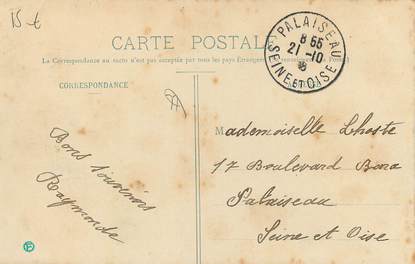 15 €
CARTE POSTALE
La Correspondance au recto n'est pas acceptée par tous les pays Étrangers
Postal
CORRESPONDANCE
PALAISEAU
8 55
21 -10
SEINE ET OISE
Mademoiselle Lhoste
17 Boulevard Bara
Palaiseau
Seine et Oise
Bons souvenirs
Raymonde